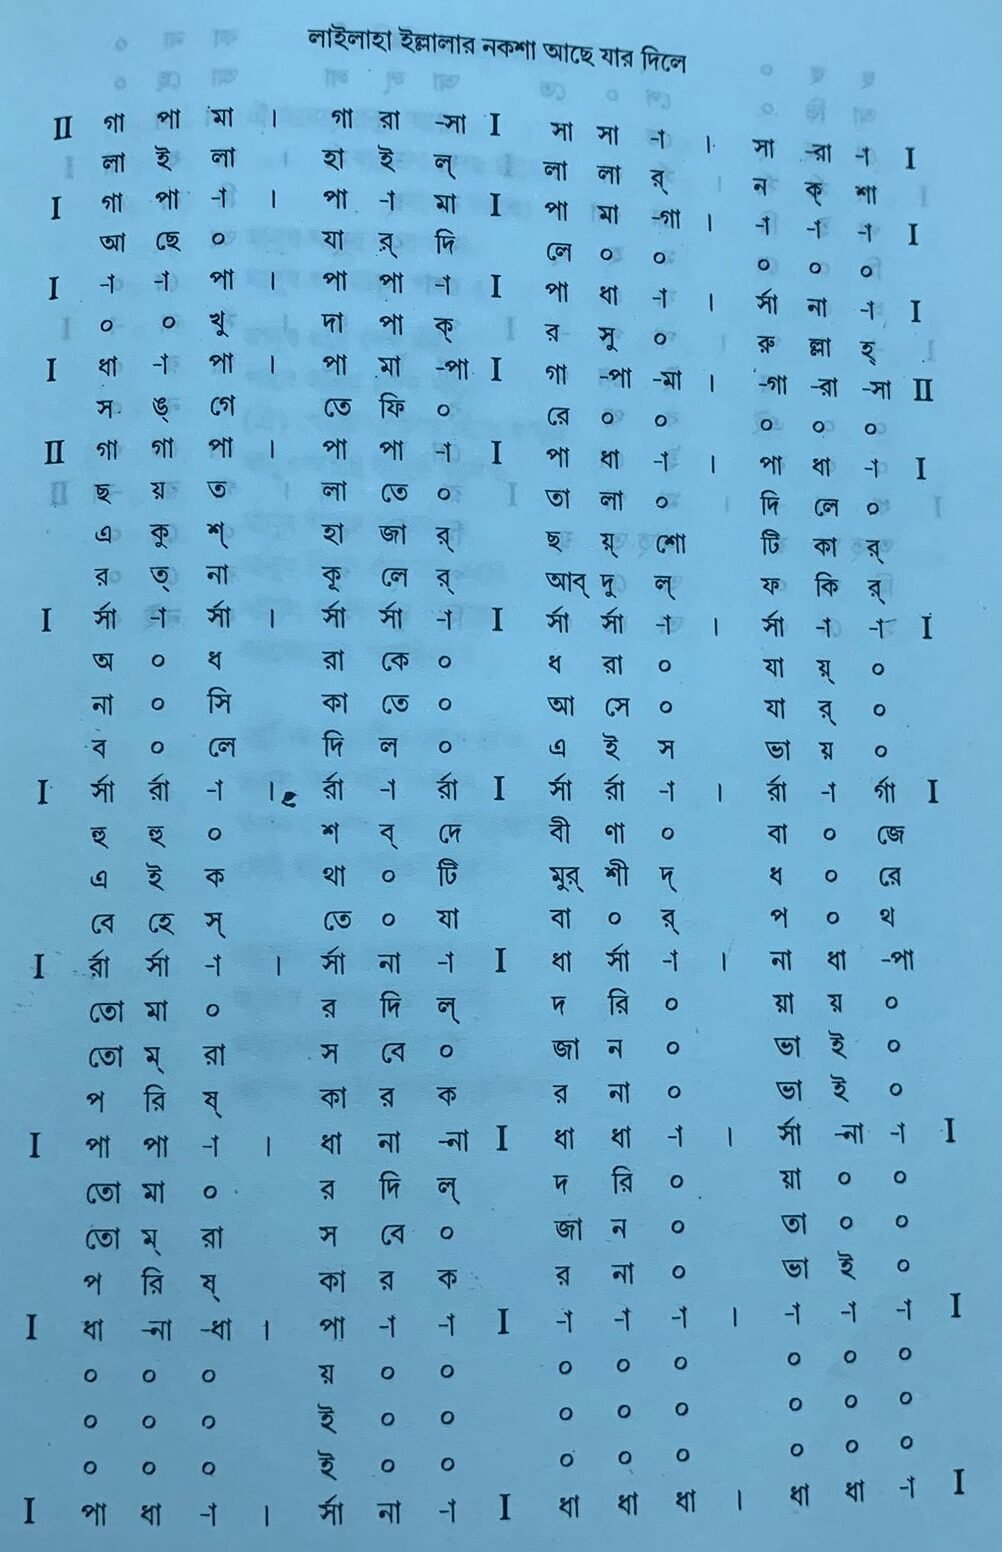 লাইলাহা ইল্লালার নকশা আছে যার দিলে
II গা পা মা । গা রা -সা I সা সা -া । সা -রা -া I
লা ই লা হা ই ল্ লা লা র্ ন ক্ শা
I গা পা -া । পা -া মা I পা মা -গা । -া -া -া I
আ ছে ০ যা র্ দি লে ০ ০ ০ ০ ০
I -া -া পা । পা পা -া I পা ধা -া । র্সা না -া I
০ ০ খু দা পা ক্ র সু ০ রু ল্লা হ্
I ধা -া পা । পা মা -পা I গা -পা -মা । -গা -রা -সা II
স ঙ্ গে তে ফি ০ রে ০ ০ ০ ০ ০
II গা গা পা । পা পা -া I পা ধা -া । পা ধা -া I
ছ য় ত লা তে ০ তা লা ০ দি লে ০
এ কু শ্ হা জা র্ ছ য়্ শো টি কা র্
র ত্ না কূ লে র্ আব্ দু ল্ ফ কি র্
I র্সা -া র্সা । র্সা র্সা -া I র্সা র্সা -া । র্সা -া -া I
অ ০ ধ রা কে ০ ধ রা ০ যা য়্ ০
না ০ সি কা তে ০ আ সে ০ যা র্ ০
ব ০ লে দি ল ০ এ ই স ভা য় ০
I র্সা র্রা -া । র্রা -া র্রা I র্সা র্রা -া । র্রা -া র্গা I
হু হু ০ শ ব্ দে বী ণা ০ বা ০ জে
এ ই ক থা ০ টি মুর্ শী দ্ ধ ০ রে
বে হে স্ তে ০ যা বা ০ র্ প ০ থ
I র্রা র্সা -া । র্সা না -া I ধা র্সা -া । না ধা -পা
তো মা ০ র দি ল্ দ রি ০ য়া য় ০
তো ম্ রা স বে ০ জা ন ০ ভা ই ০
প রি ষ্ কা র ক র না ০ ভা ই ০
I পা পা -া । ধা না -না I ধা ধা -া । র্সা -না -া I
তো মা ০ র দি ল্ দ রি ০ য়া ০ ০
তো ম্ রা স বে ০ জা ন ০ তা ০ ০
প রি ষ্ কা র ক র না ০ ভা ই ০
I ধা -না -ধা । পা -া -া I -া -া -া । -া -া -া I
০ ০ ০ য় ০ ০ ০ ০ ০ ০ ০ ০
০ ০ ০ ই ০ ০ ০ ০ ০ ০ ০ ০
০ ০ ০ ই ০ ০ ০ ০ ০ ০ ০ ০
I পা ধা -া । র্সা না -া I ধা ধা ধা । ধা ধা -া I